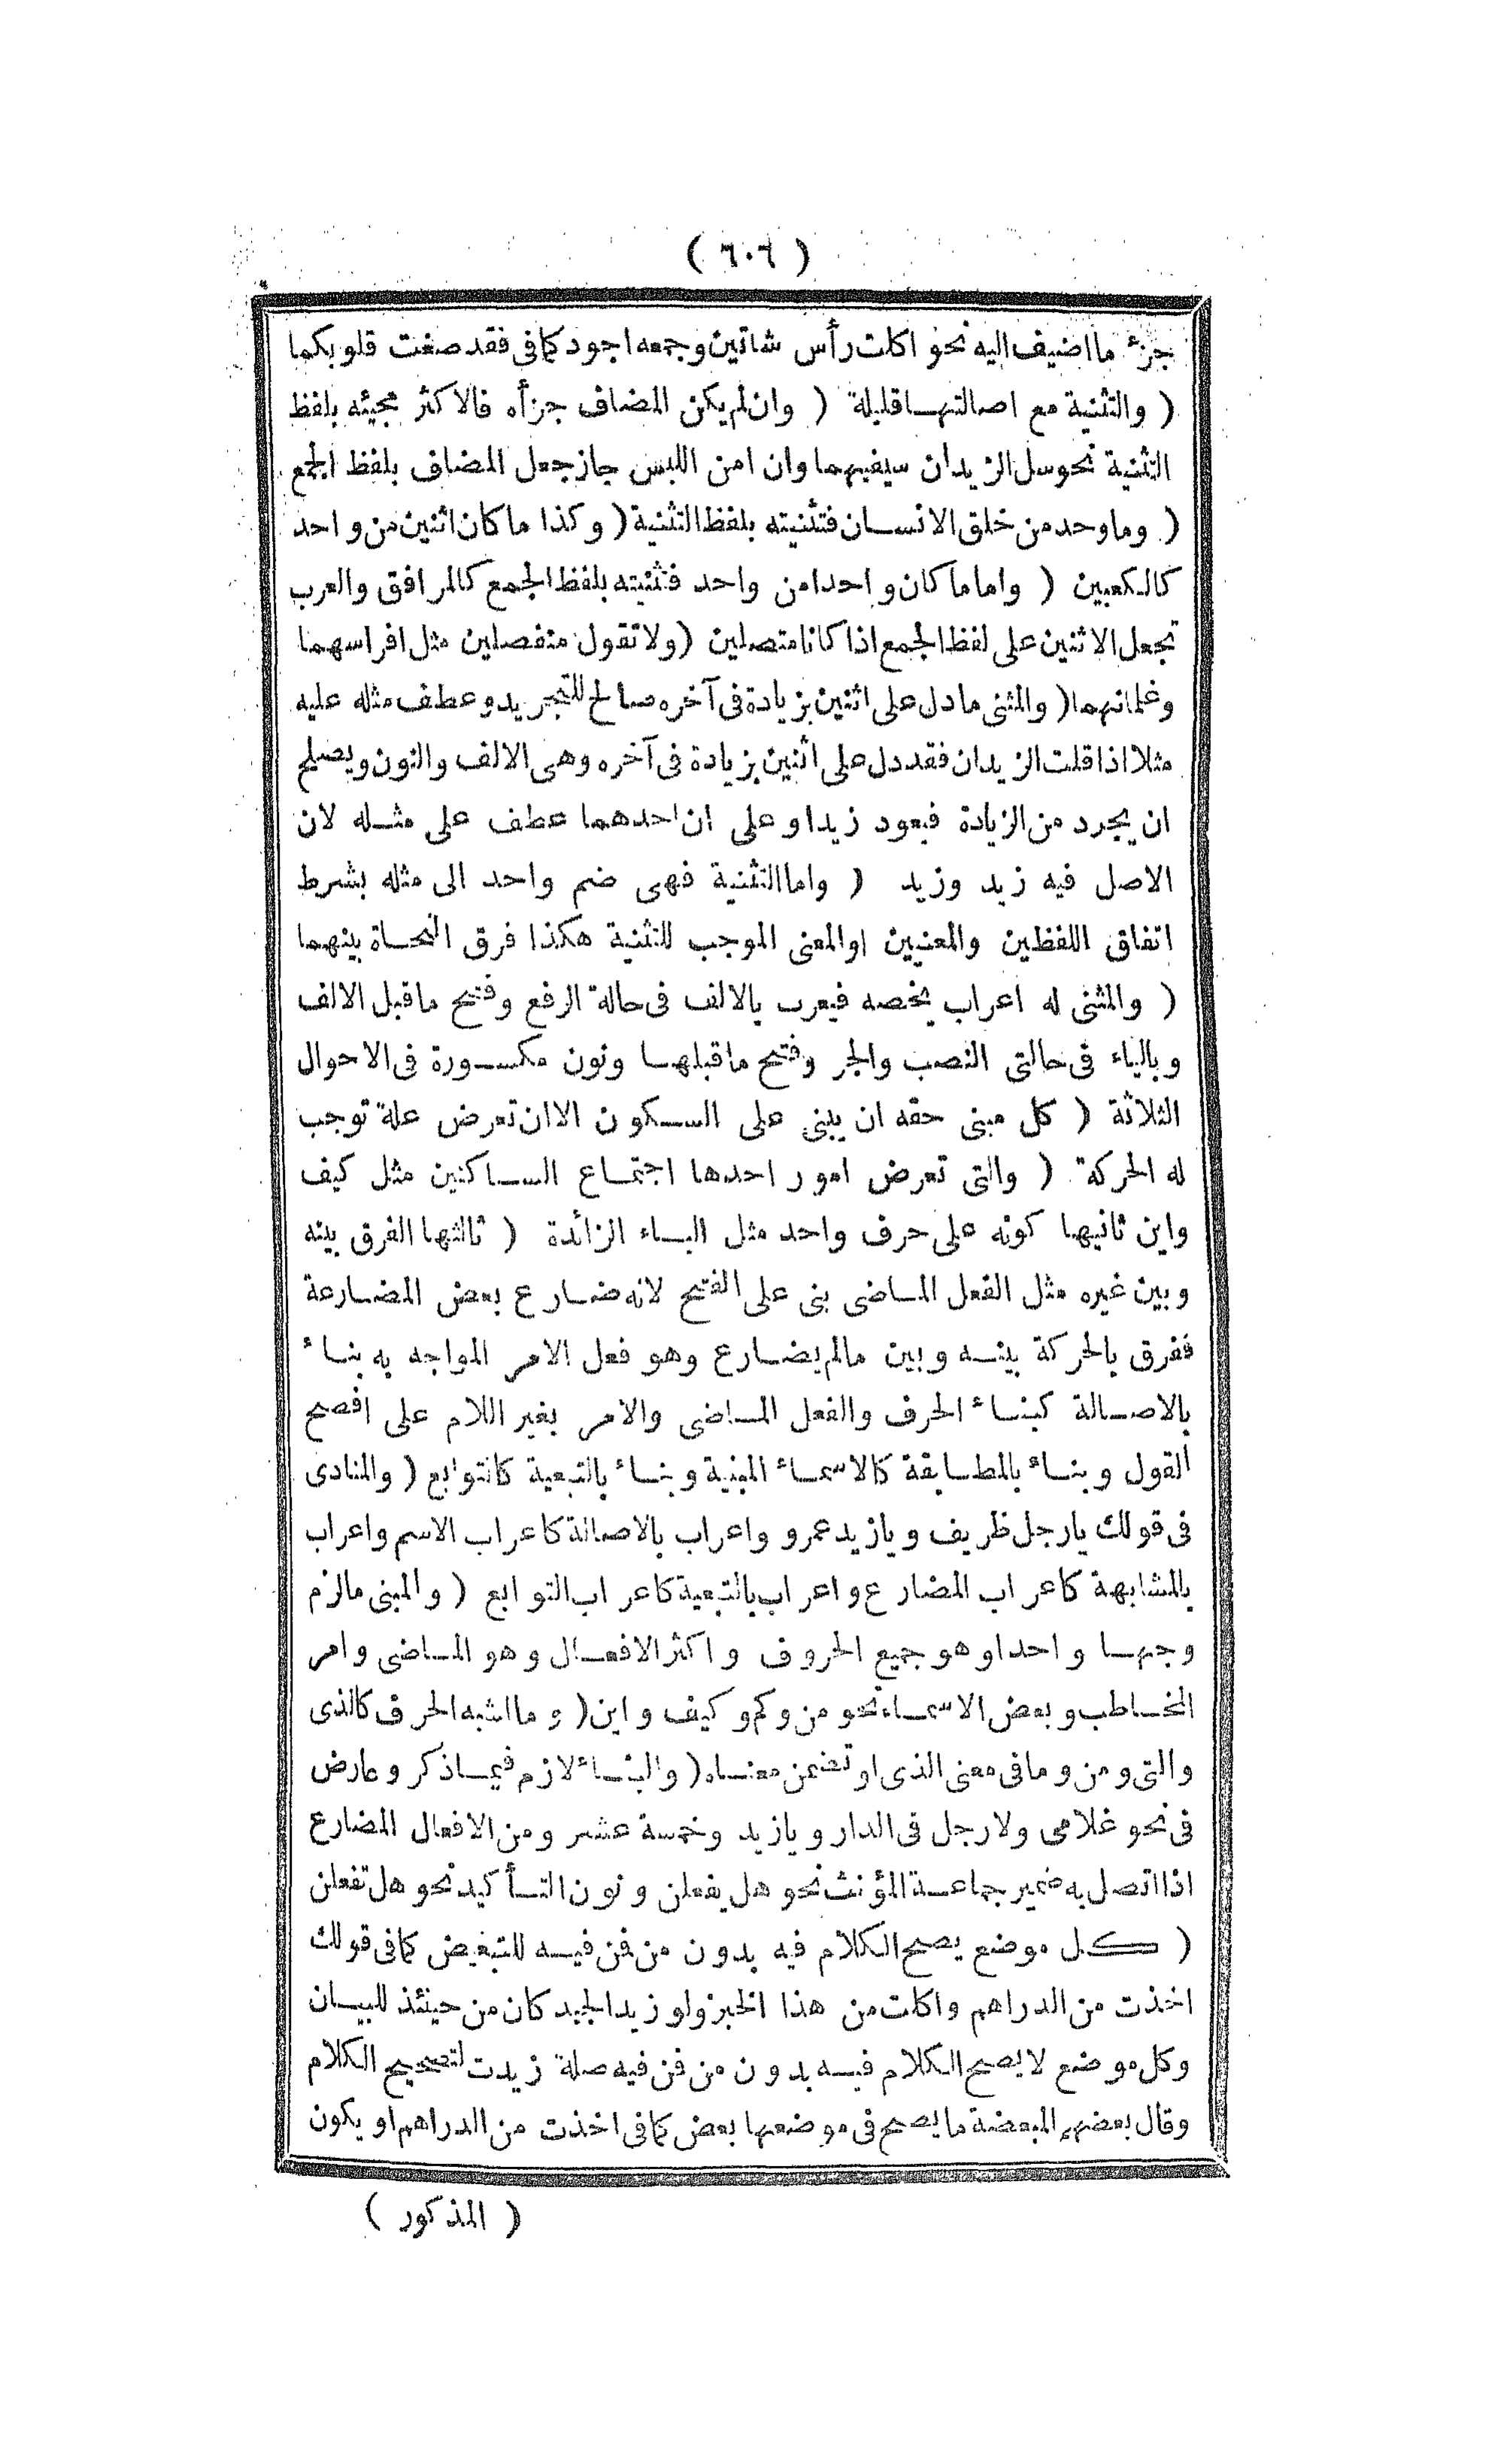 ( ٦٠٦ )
جزء ما اضيف اليه نحو اكلت رأس شاتين وجمعه اجود كما فى فقد صغت قلوبكما
( والتثنية مع اصالتهـا قليلة ( وان لم يكن المضاف جزأه فالاكثر مجيئه بلفظ
التثنية نحو سل الزيدان سيفيهما وان امن اللبس جاز جعل المضاف بلفظ الجمع
( وما وحد من خلق الانسـان فتثنيته بلفظ التثنية ( وكذا ما كان اثنين من واحد
كالكعبين ( واما ما كان واحدا من واحد فثنيته بلفظ الجمع كالمرافق والعرب
تجعل الاثنين على لفظ الجمع اذا كانا متصلين ( ولا تقول منفصلين مثل افراسهما
وغلمانهما ( والمثنى ما دل على اثنين بزيادة فى آخره صالح للتجريد وعطف مثله عليه
مثلا اذا قلت الزيدان فقد دل على اثنين بزيادة فى آخره وهى الالف والنون ويصلح
ان يجرد من الزيادة فيعود زيدا وعلى ان احدهما عطف على مثـله لان
الاصل فيه زيد وزيد ( واما التثنية فهى ضم واحد الى مثله بشرط
اتفاق اللفظين والمعنيين او المعنى الموجب للتثنية هكذا فرق النحـاة بينهما
( والمثنى له اعراب يخصه فيعرب بالالف فى حالة الرفع وفتح ما قبل الالف
وبالياء فى حالتى النصب والجر وفتح ما قبلهـا ونون مكسـورة فى الاحوال
الثلاثة ( كل مبنى حقه ان يبنى على السـكون الا ان تعرض علة توجب
له الحركة ( والتى تعرض امور احدها اجتمـاع السـاكنين مثل كيف
واين ثانيها كونه على حرف واحد مثل البـاء الزائدة ( ثالثها الفرق بينه
وبين غيره مثل الفعل المـاضى بنى على الفتح لانه ضـارع بعض المضـارعة
ففرق بالحركة بينـه وبين ما لم يضـارع وهو فعل الامر المواجه به بنـاء
بالاصـالة كبنـاء الحرف والفعل المـاضى والامر بغير اللام على افصح
القول وبنـاء بالمطـابقة كالاسمـاء المبنية وبنـاء بالتبعية كالتوابع ( والمنادى
فى قولك يا رجل ظريف ويا زيد عمرو واعراب بالاصالة كاعراب الاسم واعراب
بالمشابهة كاعراب المضارع واعراب بالتبعية كاعراب التوابع ( والمبنى ما لزم
وجهـا واحدا وهو جميع الحروف واكثر الافعـال وهو المـاضى وامر
المخـاطب وبعض الاسمـاء نحو من وكم وكيف واين ( وما اشبه الحرف كالذى
والتى ومن وما فى معنى الذى او تضمن معنـاه ( والبنـاء لازم فيمـا ذكر وعارض
فى نحو غلامى ولا رجل فى الدار ويا زيد وخمسة عشر ومن الافعال المضارع
اذا اتصل به ضمير جماعـة المؤنث نحو هل يفعلن ونون التـأكيد نحو هل تفعلن
( كـل موضع يصح الكلام فيه بدون من فمن فيـه للتبعيض كما فى قولك
اخذت من الدراهم واكلت من هذا الخبز ولو زيد الجيد كان من حينئذ للبيـان
وكل موضع لا يصح الكلام فيـه بدون من فمن فيه صلة زيدت لتصحيح الكلام
وقال بعضهم المبعضة ما يصح فى موضعها بعض كما فى اخذت من الدراهم او يكون
( المذكور )